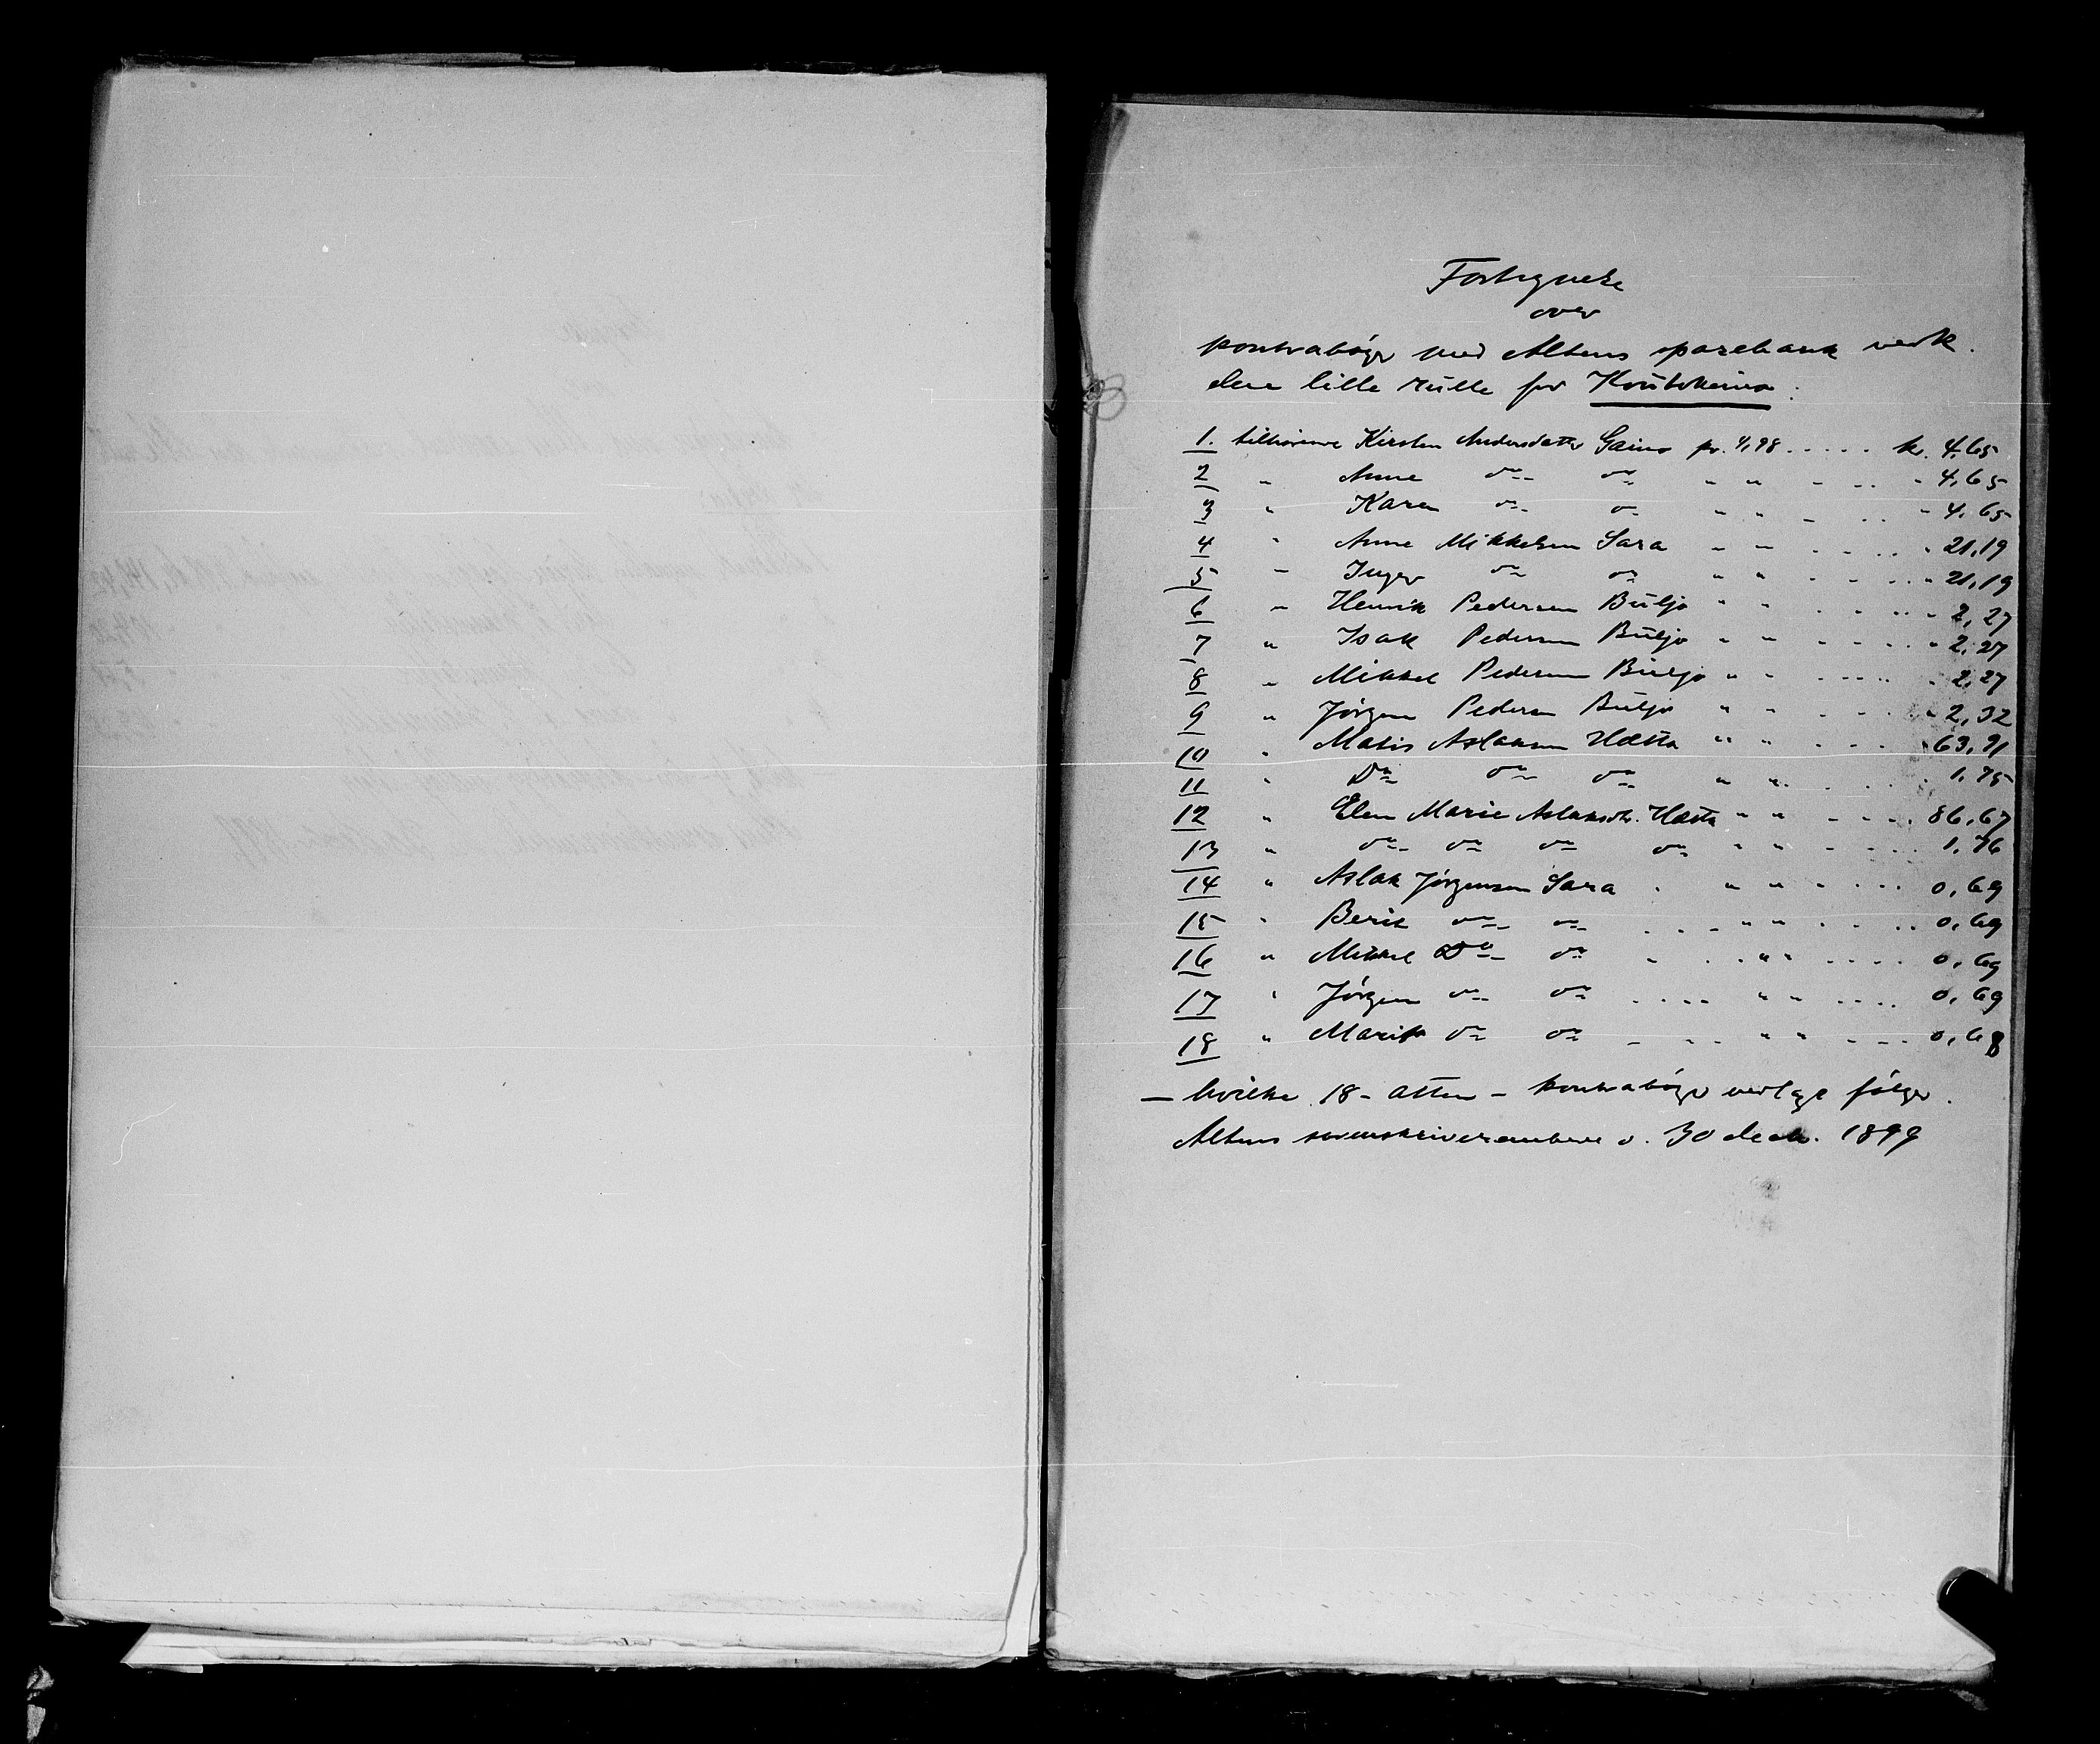 Fortegnelse
over
kontrabøger med Altens sparebank vedk.
den lille rulle for Koutokeino:
1. tilhørende Kirsten Andersdatter Gaino pr. 4/98 ..... kr. 4,65
2 " Anne do do " " - .. - 4,65
3 " Karen do do " " - .. - 4,65
4 " Anne Mikkelsen Sara " - - . . . . 21,19
5 " Inger do do " " - . - .. 21,19
6 " Henrik Pedersen Buljo " " . . . .. - 2,27
7 " Isak Pedersen Buljo " " - . . . . " 2,27
8 " Mikkel Pedersen Buljo " " . .... . 2,27
9 " Jørgen Pedersen Buljo " " . . . " 2,32
10 " Matis Aslaksen Hætta " " . . . . 63,91
11 " Do do do " " . . . . 1,75
12 " Elen Marie Aslaksdtr. Hætta " " - . - . 86,67
13 " do do do do " " - . . . 1,76
14 " Aslak Jørgensen Sara . " " . . . . 0,69
15 " Berit do do . . - " " . . .. 0,69
16 " Mikkel Do do - . . " " . . . . 0,69
17 " Jørgen do do .... " " . . . . 0,69
18 " Marit do do - - .. " " - - - 0,68
— hvilke 18 - atten - kontrabøger vedlagt følger.
Altens sorenskriverembede d. 30 decb. 1899